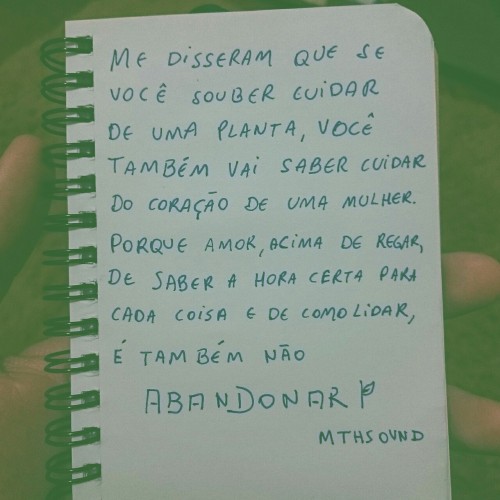 ME DISSERAM QUE SE
VOCÊ SOUBER CUIDAR
DE UMA PLANTA, VOCÊ
TAMBÉM VAI SABER CUIDAR
DO CORAÇÃO DE UMA MULHER.
PORQUE AMOR, ACIMA DE REGAR,
DE SABER A HORA CERTA PARA
CADA COISA E DE COMO LIDAR,
É TAMBÉM NÃO
ABANDONAR
MTHSOUND